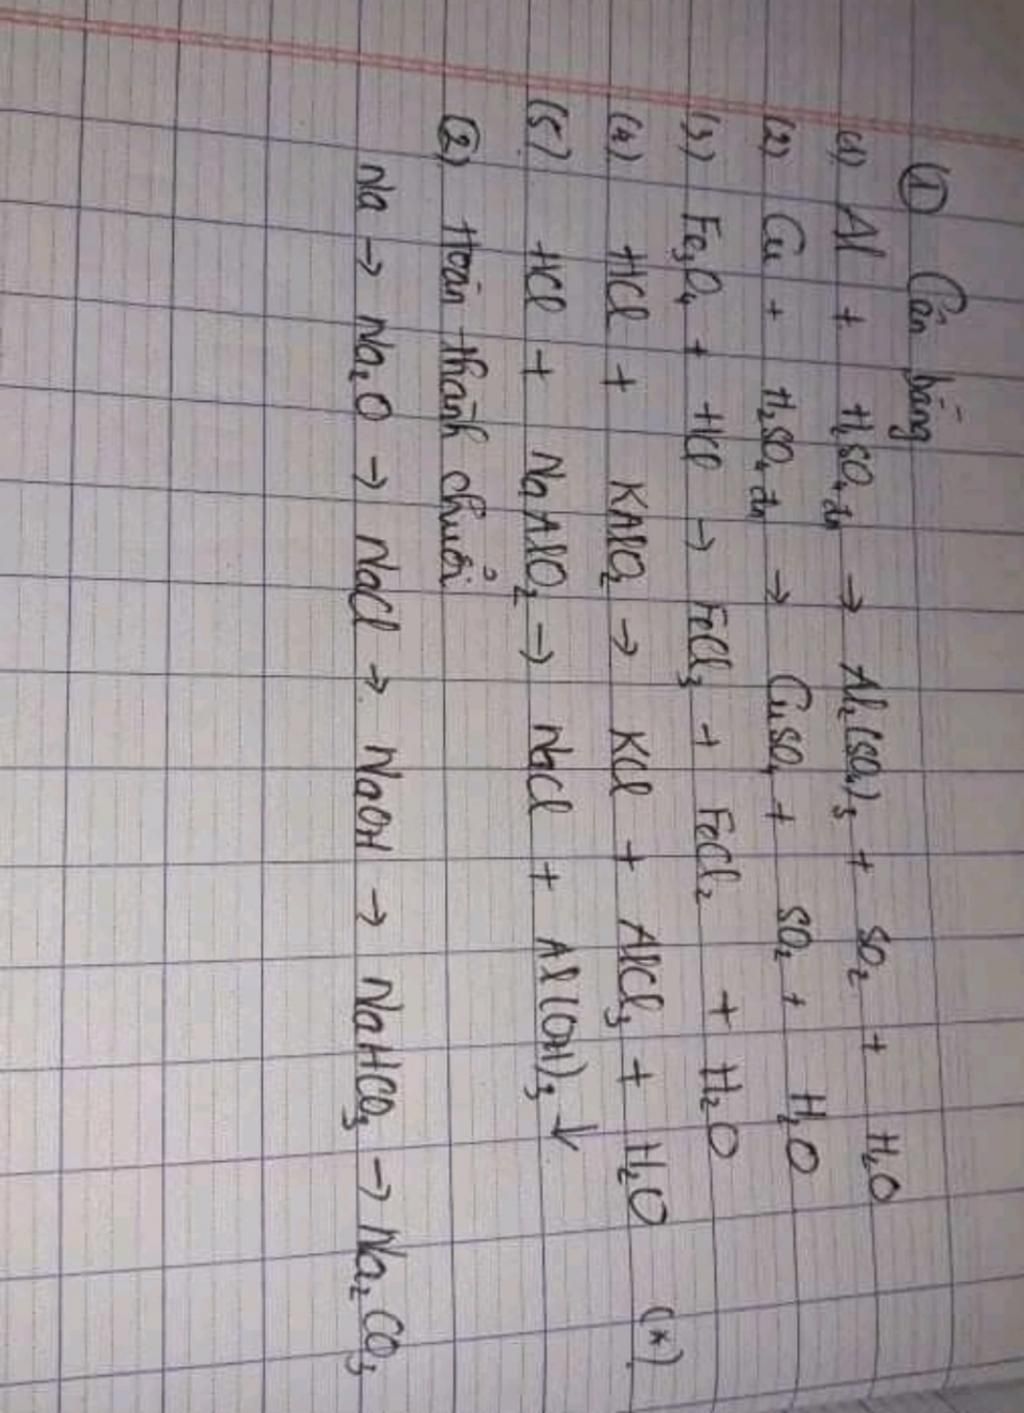 ① Cân bằng
(1) Al + H₂SO₄ đn → Al₂(SO₄)₃ + SO₂ + H₂O
(2) Cu + H₂SO₄ đn → CuSO₄ + SO₂ + H₂O
(3) Fe₃O₄ + HCl → FeCl₃ + FeCl₂ + H₂O
(4) HCl + KAlO₂ → KCl + AlCl₃ + H₂O (*)
(5) HCl + NaAlO₂ → NaCl + Al(OH)₃ ↓
② Hoàn thành chuỗi
Na → Na₂O → NaCl → NaOH → NaHCO₃ → Na₂CO₃